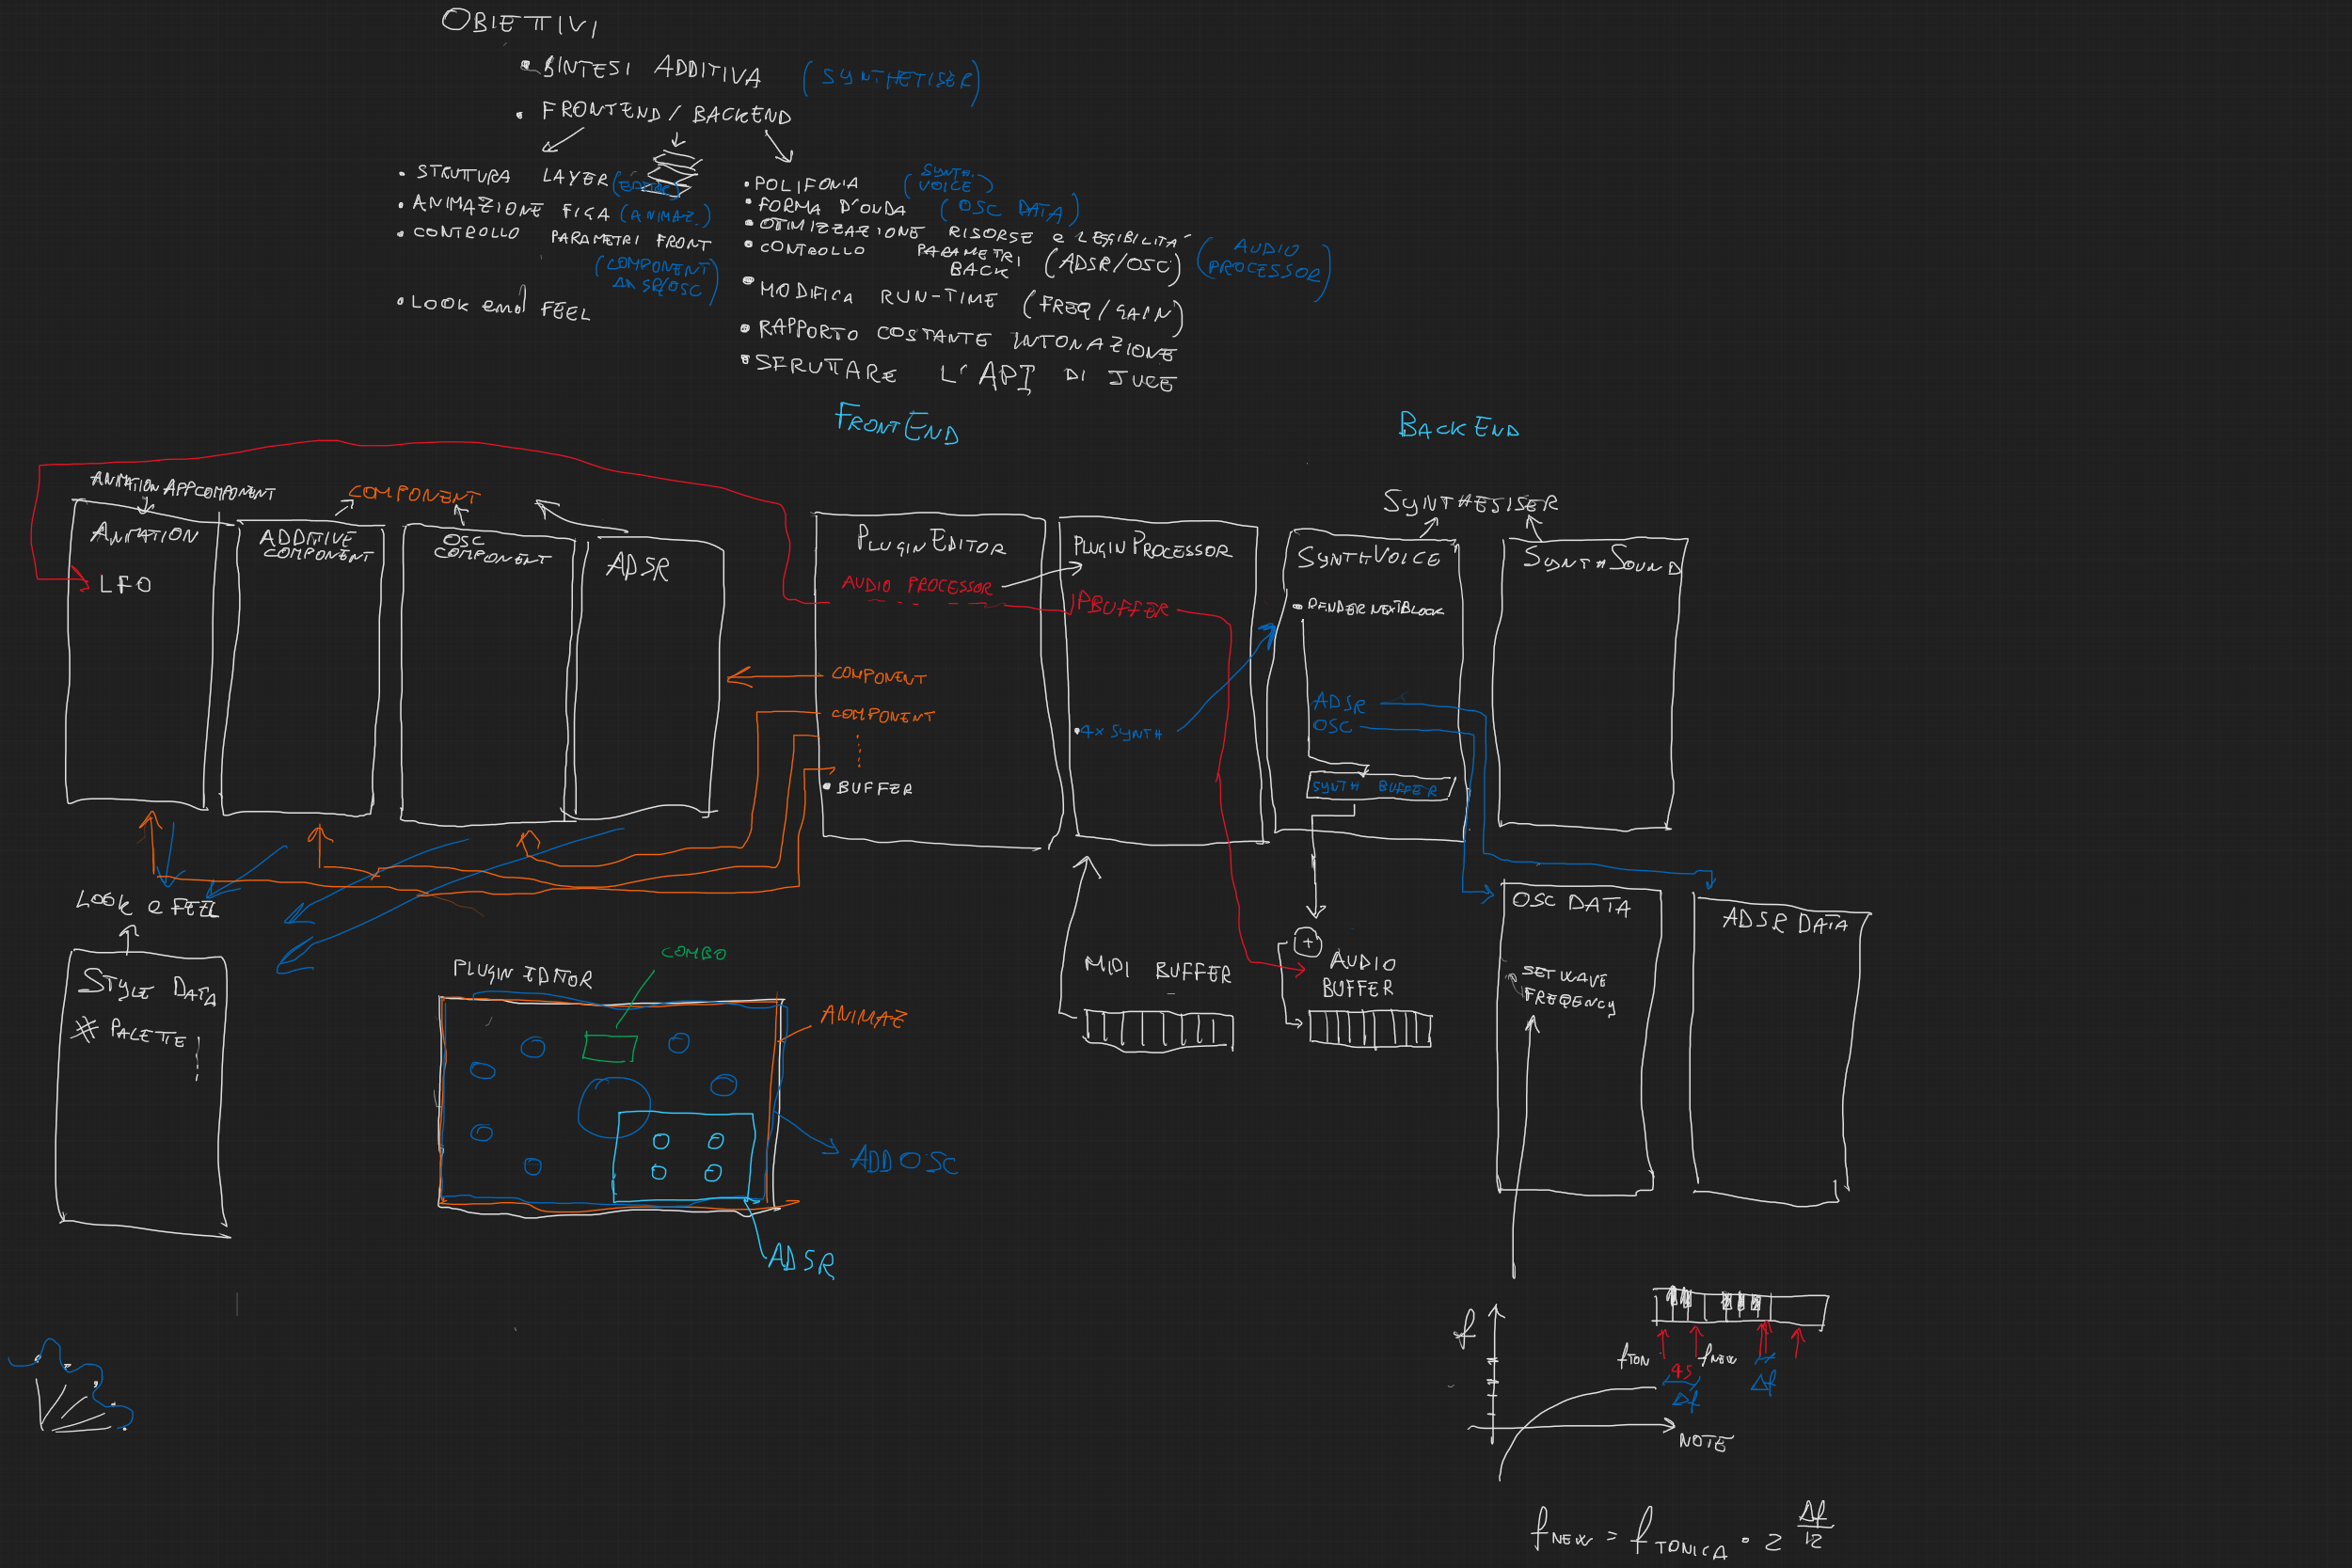 OBIETTIVI
• SINTESI ADDITIVA (SYNTHETISER)
• FRONTEND / BACKEND
• STRUTTURA LAYER (EDITOR)
• ANIMAZIONE FIGA (ANIMAZ.)
• CONTROLLO PARAMETRI FRONT
(COMPONENT
ADSR/OSC)
• LOOK and FEEL
• POLIFONIA (SYNTH. VOICE)
• FORMA D'ONDA (OSC DATA)
• OTIMIZZAZIONE RISORSE e LEGIBILITÁ
• CONTROLLO PARAMETRI BACK (ADSR/OSC) (AUDIO PROCESSOR)
• MODIFICA RUN-TIME (FREQ/GAIN)
• RAPPORTO COSTANTE INTONAZIONE
• SFRUTTARE L'API DI JUCE
FRONTEND
BACKEND
ANIMATION APPCOMPONENT
COMPONENT
SYNTHESISER
ANIMATION
LFO
ADDITIVE
COMPONENT
OSC
COMPONENT
ADSR
PLUGIN EDITOR
AUDIO PROCESSOR
COMPONENT
COMPONENT
• BUFFER
PLUGIN PROCESSOR
PBUFFER
• 4x SYNTH
SYNTHVOICE
• RENDERNEXTBLOCK
ADSR
OSC
SYNTH BUFFER
SYNTHSOUND
LOOK e FEEL
STYLE DATA
* PALETTE
PLUGIN EDITOR
COMBO
ANIMAZ
ADD OSC
ADSR
MIDI BUFFER
+
AUDIO
BUFFER
OSC DATA
SET WAVE
FREQUENCY
ADSR DATA
f
fTON
4S
fNEW
Δf
Δf
NOTE
fNEW = fTONICA · 2 Δf/12